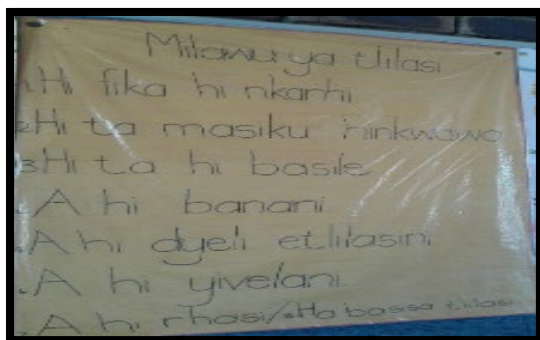 Milawu ya tlilasi
1.Hi fika hi nkarhi
2Hi ta masiku hinkwawo
3Hi ta hi basile
.A hi banani
.A hi dyeli etlilasini
.A hi yivelani
.A hi rhasi/ Ha bassa tlilasi